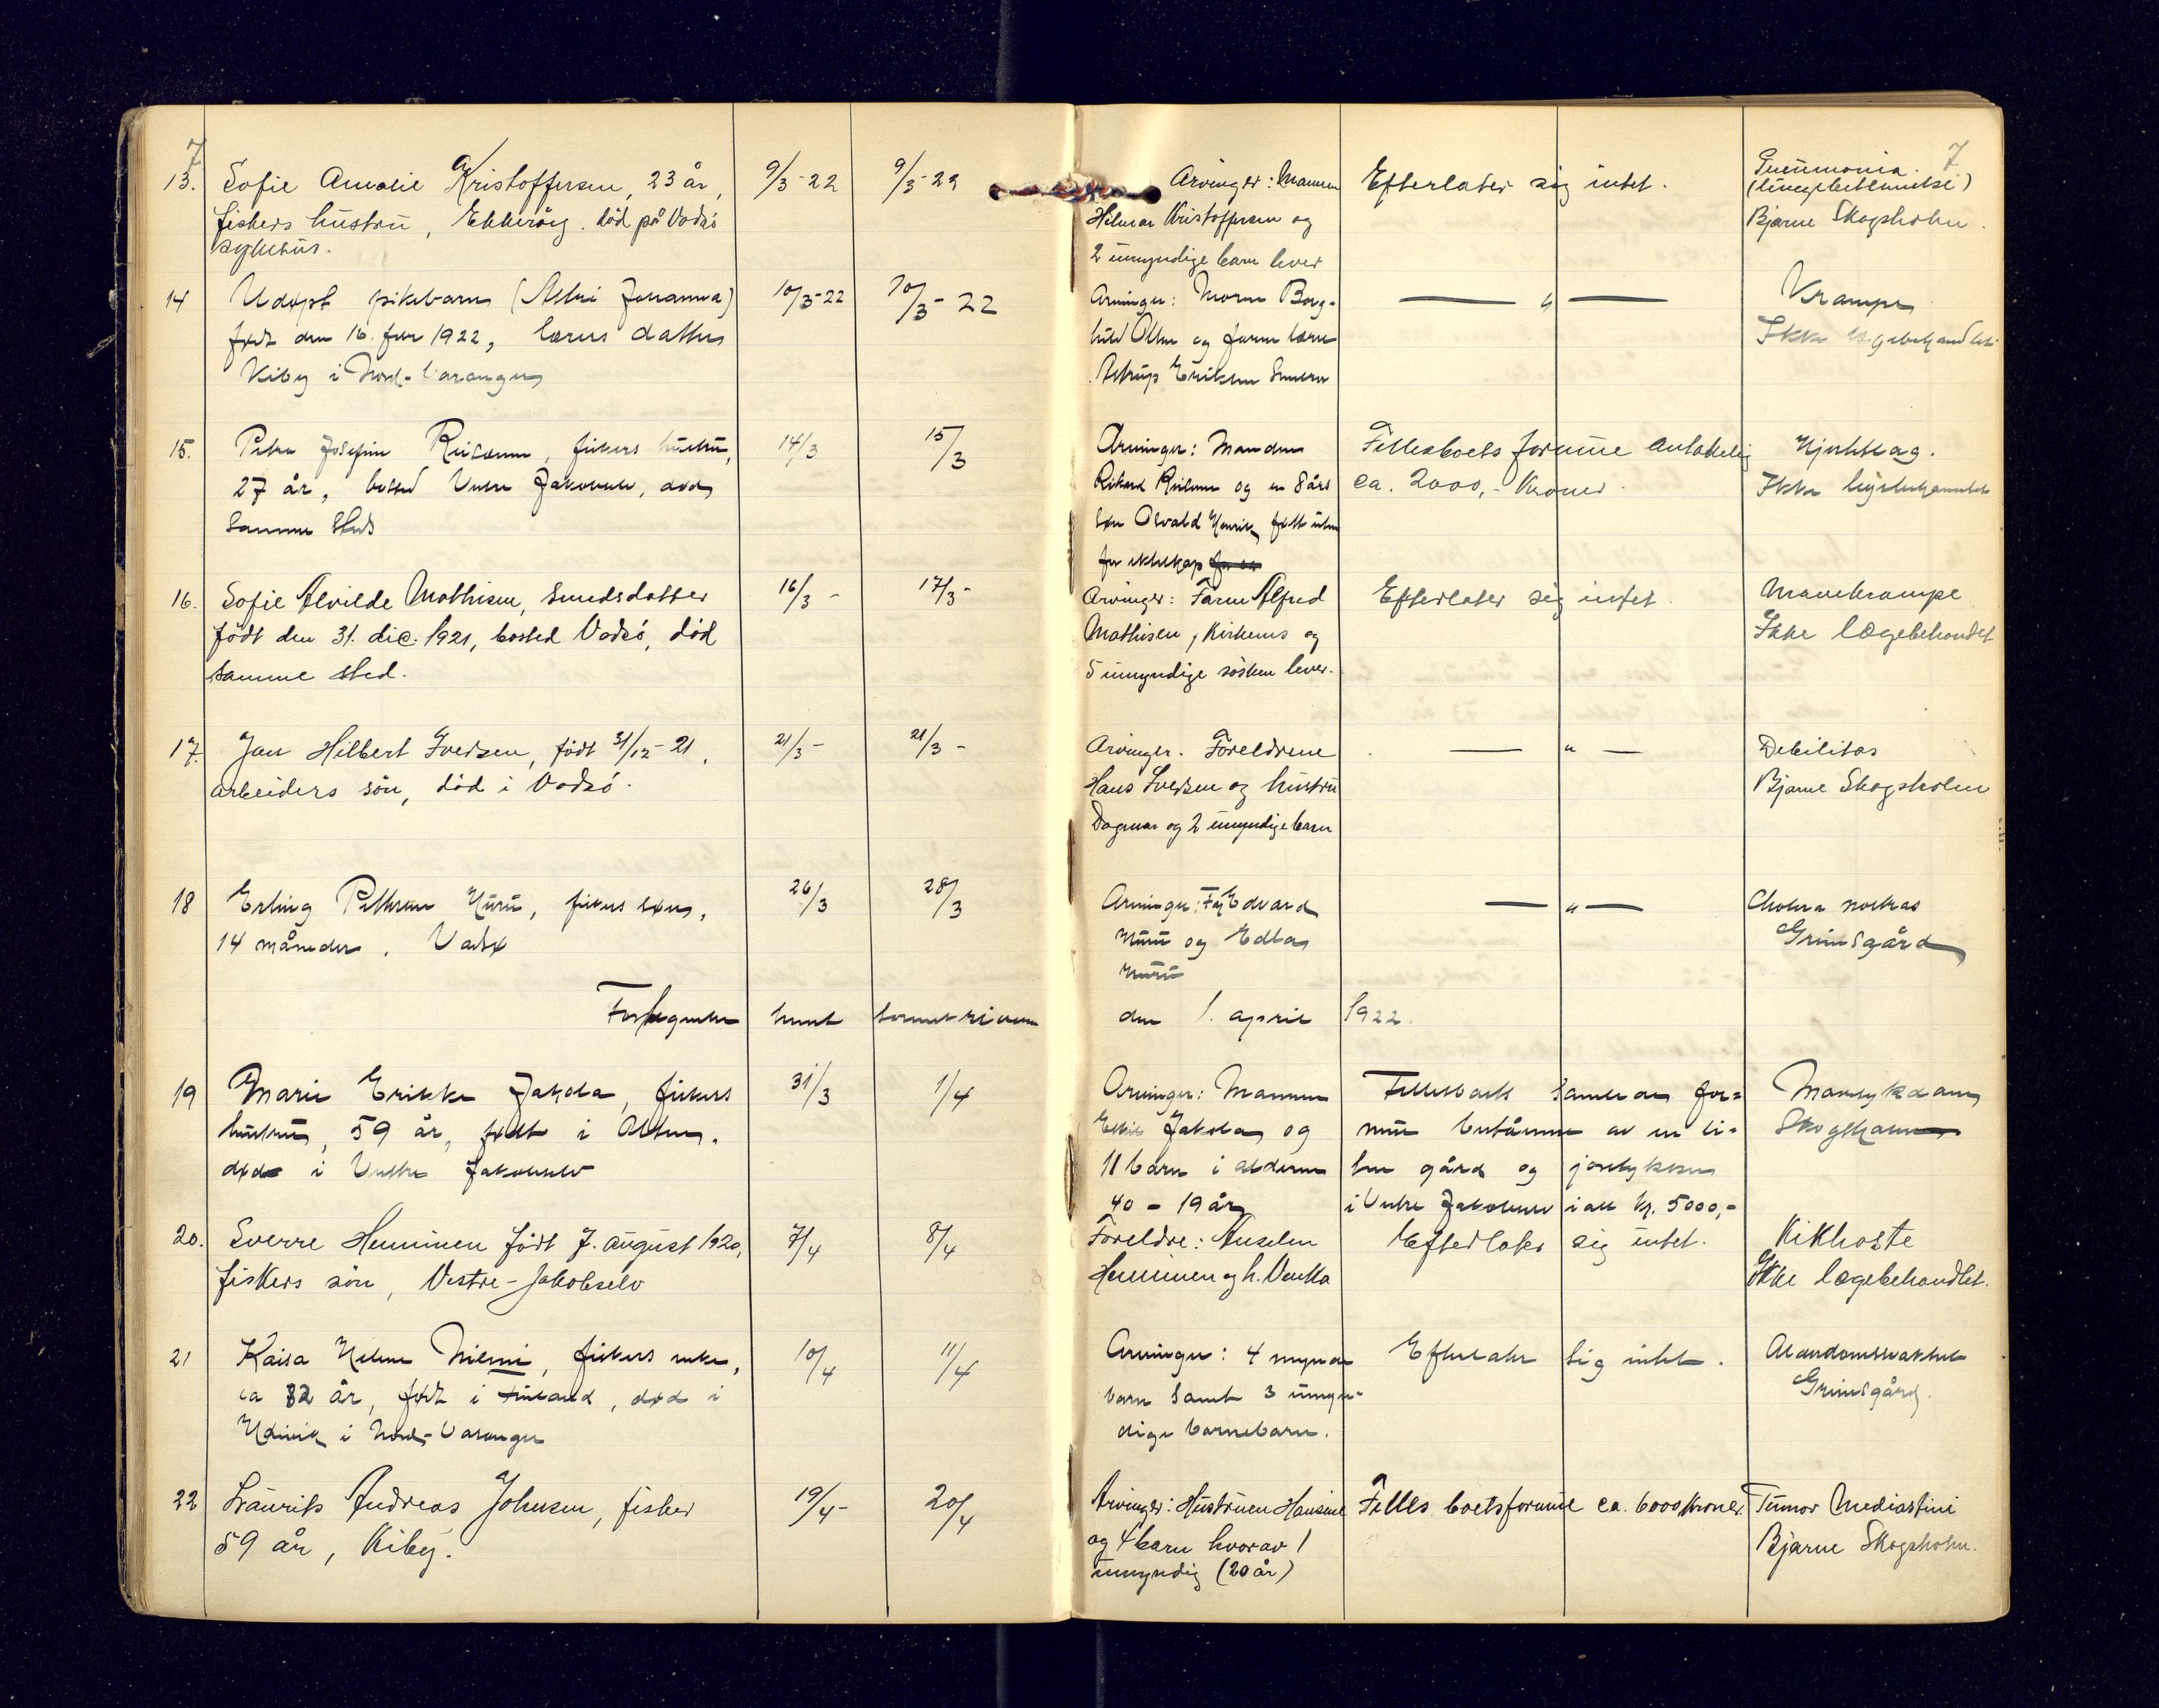 7
7
13. Sofie Amalie Kristoffersen, 23 år,
fiskers hustru, Ekkeröy. död på Vadsö
sykehus.
9/3-22
9/3-22
Arvinger: Mannen
Hilmar Kristoffersen og
2 umyndige barn lever
Efterlater sig intet.
Pneumonia.
(lungebetennelse)
Bjarne Skogsholm.
14 Udøpt pikebarn (Astri Johanna)
født den 16. febr 1922, lærers datter
Kiby i Nord-Varanger
10/3-22
10/3-22
Arvinger: Moren Borg-
hild Olsen og faren lærer
Astrup Eriksen
— " —
Krampe
Ikke lægebehandlet
15. Petra Josefine, fiskers hustru,
27 år, bosted Vestre Jakobselv, død
samme sted
14/3
15/3
Arvinger: Manden
Rikard og en 8 års
søn Osvald Henrik født uten
for ekteskap
Fellesboets formue antakelig
ca. 2000,- kroner.
Hjerteslag.
Ikke lægebehandlet
16. Sofie Alvilde Mathisen, smedsdatter
født den 31. dec. 1921, bosted Vadsö, död
samme sted.
16/3 -
17/3 -
Arvinger: Faren Alfred
Mathisen, Kirkenes og
5 umyndige søsken lever.
Efterlater sig intet.
Mavekrampe
Ikke lægebehandlet
17. Jan Hilbert Iversen, födt 31/12-21,
arbeiders sön, död i Vadsö.
21/3 -
21/3 -
Arvinger. Foreldrene
Hans Iversen og hustru
Dagmar og 2 umyndige barn
— " —
Debilitas
Bjarne Skogsholm
18 Erling Petter Nuru, fiskers søn,
14 måneder. Vadsø
26/3
28/3
Arvinger: Edvard
Nuru og Edla
Nuru
— " —
Cholera nostras
Grimsgård
Fortegnelse sendt sorenskriveren den 1. april 1922.
19 Marie Erikke Jakola, fiskers
hustru, 59 år, født i Alten,
død i Vestre Jakobselv
31/3
1/4
Arvinger: Mannen
Jakola og
11 barn i alderen
40 - 19 år
Fellesboets samlede for-
mue bestående av en li-
ten gård og jordstykker
i Vestre Jakobselv i alt kr. 5000,-
Mavesykdom
Skogsholm
20. Sverre Henninen födt 7. august 1920,
fiskers sön, Vestre-Jakobselv
7/4
8/4
Foreldre: Anselm
Henninen og h. Venka
Efterlater sig intet.
Kikhoste
Ikke lægebehandlet.
21 Kaisa Helene Niemi, fiskers enke,
ca 82 år, født i Finland, død i
i Nord-Varanger
10/4
11/4
Arvinger: 4 myndige
barn samt 3 umyn-
dige barnebarn.
Efterlater sig intet.
Alderdomssvakhet
Grimsgård.
22 Laurits Andreas Johnsen, fisker
59 år, Kiby.
19/4-
20/4
Arvinger: Hustruen Hansine
og 4 barn hvorav 1
umyndig (20 år)
Felles boets formue ca. 6000 kroner.
Tumor Mediastini
Bjarne Skogsholm.